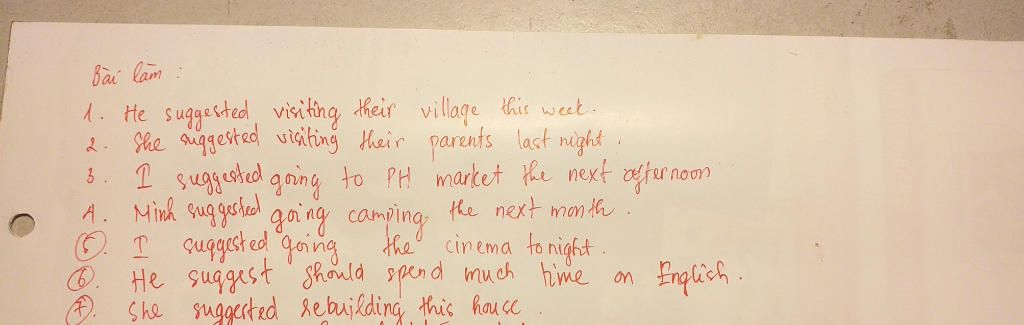 Bài làm :
1. He suggested visiting their village this week.
2. She suggested visiting their parents last night.
3. I suggested going to PH market the next afternoon
4. Minh suggested going camping the next month.
5. I suggested going the cinema tonight.
6. He suggest should spend much time on English.
7. She suggested rebuilding this house.